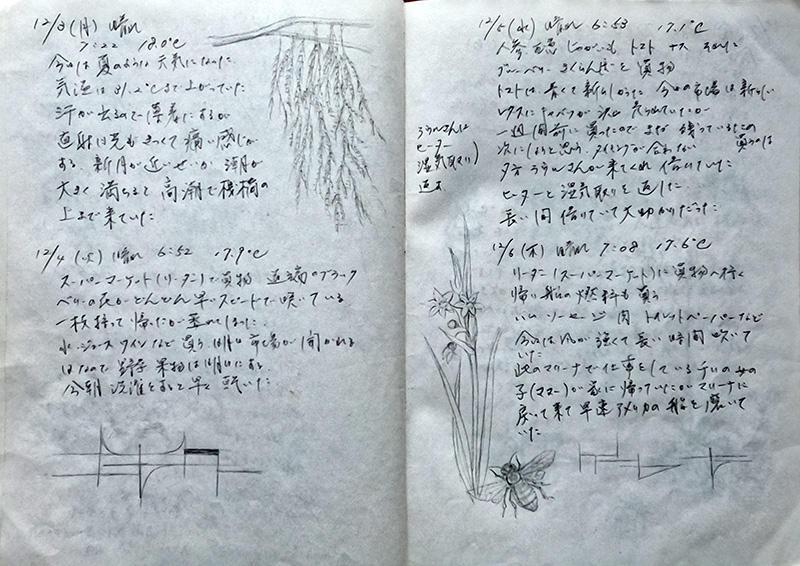 12/3 (月) 晴れ
7:22 18.0℃
今日は夏のように天気になった
気温は31.2℃まで上がっていた
汗が出るので薄着にするが
直射日光もきつくて痛い感じが
ある 新月が近いせいか 潮が
大きく満ちると高潮で桟橋の
上まで来ていた
12/4 (火) 晴れ 6:52 17.9℃
スーパーマーケット(リーダー)で買物 道端のブラック
ベリーの花がどんどん早いスピードで咲いている
一枝持って帰ったが萎れてしまった
水 ジュース ワインなど買う 明日 市場が開かれる
はなので 野菜 果物は明日にする
今朝 洗濯をすると早く乾いた
12/5 (水) 晴れ 6:53 17.1℃
人参 じゃがいも トマト ナス
ブルーベリー さくらんぼを買物
トマトは青くて新らしかった 今日の市場は新しい
レタスにキャベツが沢山売られていたが
一週間前に買ったのでまだ残っているこの
次にしようと思う タイミングが合わない 買うのは
夕方 さんが来てくれ借りていた
ヒーターと湿気取りを返した
長い間借りていて大助かりだった
さんに
ヒーター
湿気取り
返す
12/6 (木) 晴れ 7:08 17.6℃
リーダー(スーパーマーケット)に買物へ行く
帰り船の燃料も買う
ハム ソーセージ 肉 トイレットペーパーなど
今日は風が強くて長い時間吹いて
いた
此のマリーナで仕事をしている の女の
子( )が家に帰っていたがマリーナに
戻って来て早速アメリカの船を磨いて
いた